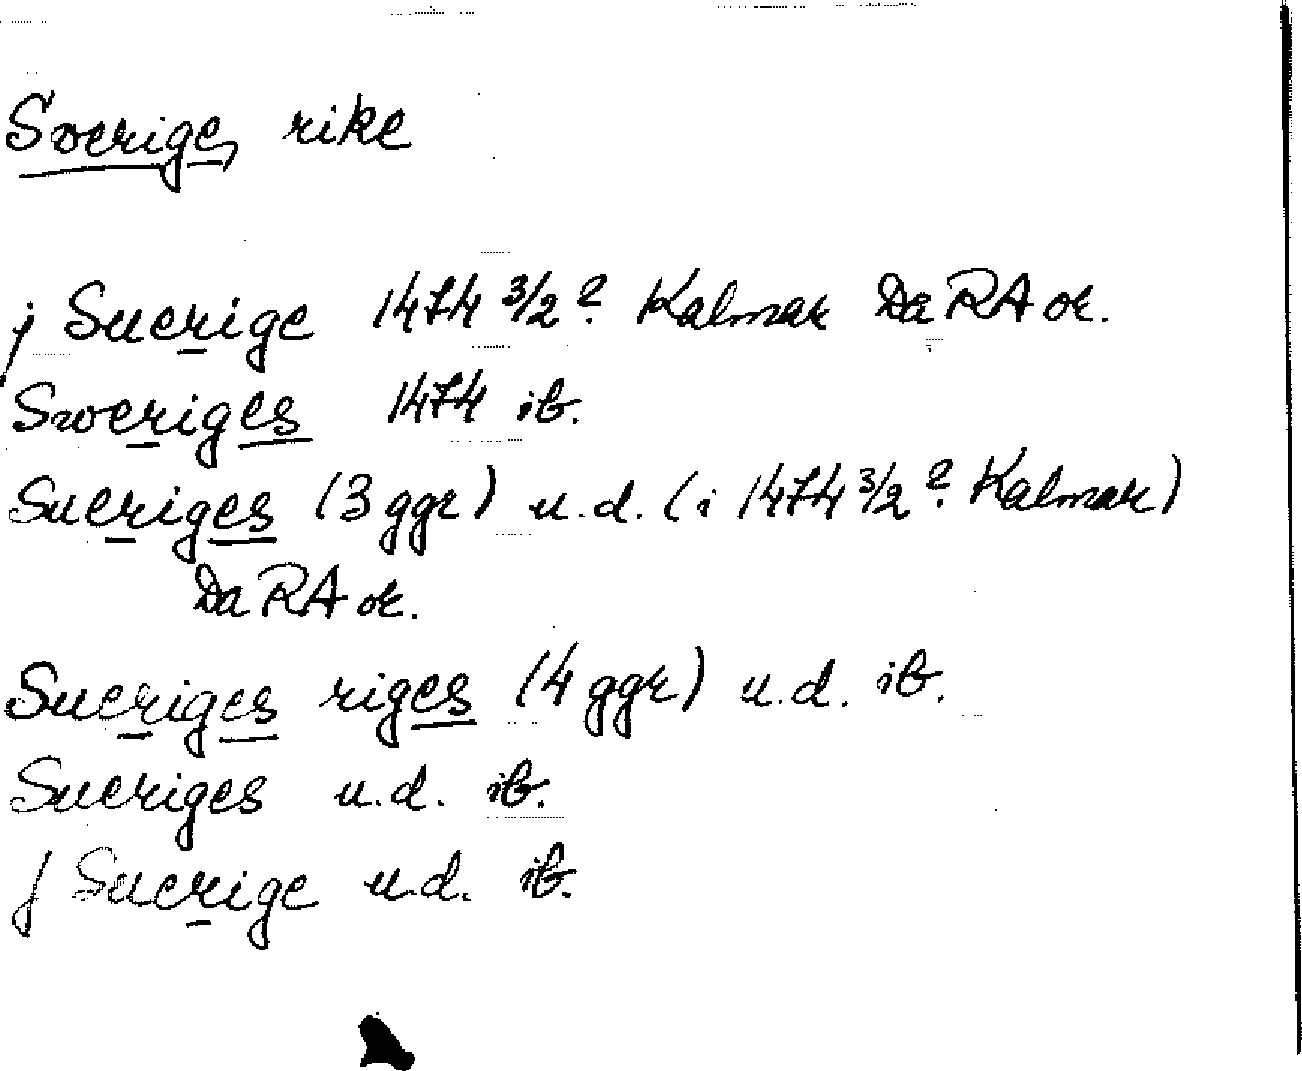 Sverige, rike
j Suerige 1474 3/2? Kalmar DaRA or.
Sweriges 1474 ib.
Sueriges (3 ggr) u.d. (i 1474 3/2? Kalmar)
DaRA or.
Sueriges riges (4 ggr) u.d. ib.
Sueriges u.d. ib.
j Suerige u.d. ib.